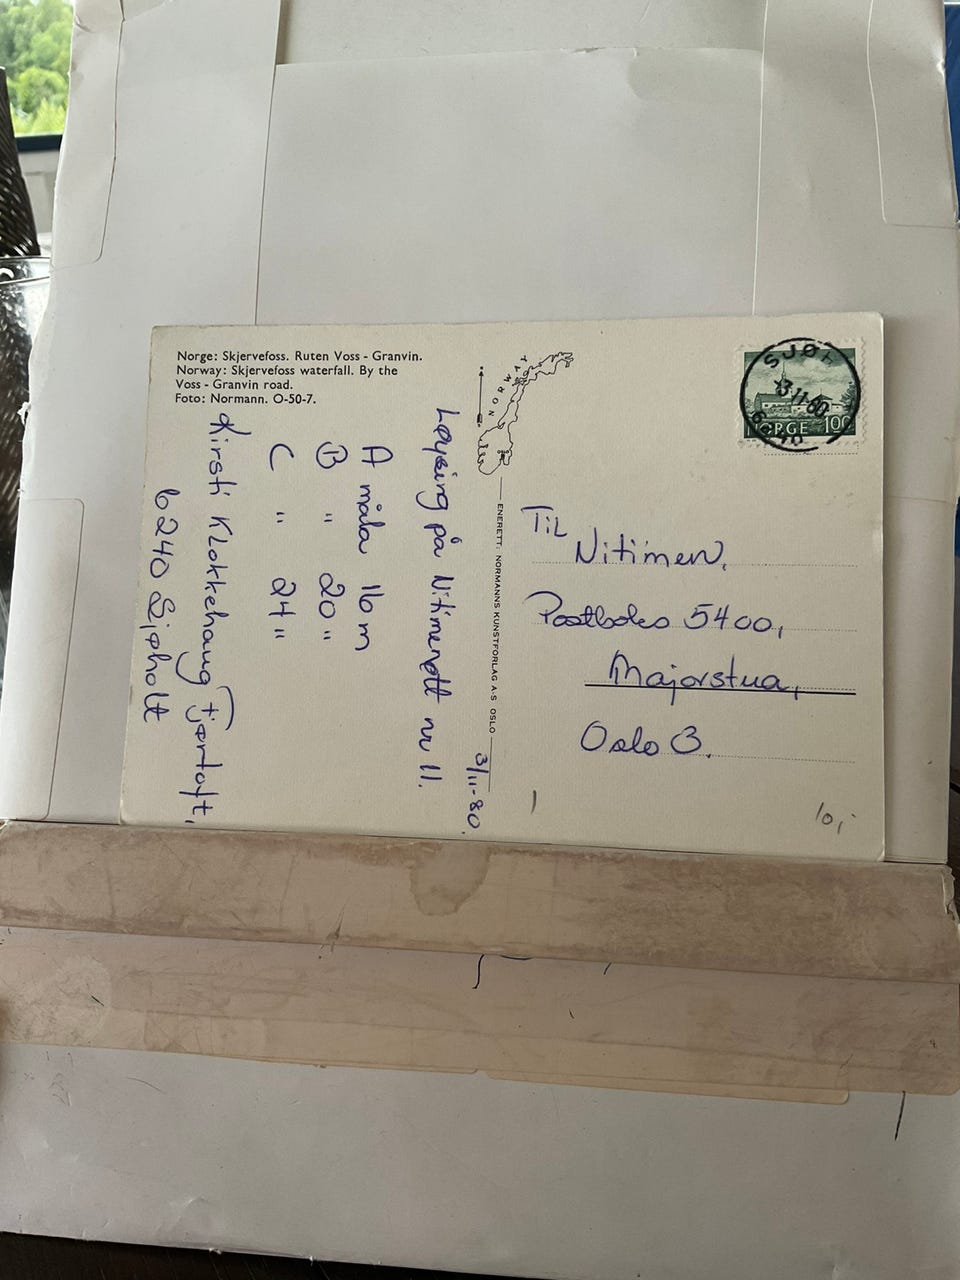 Norge: Skjervefoss. Ruten Voss - Granvin.
Norway: Skjervefoss waterfall. By the
Voss - Granvin road.
Foto: Normann. O-50-7.
NORWAY
ENERETT: NORMANNS KUNSTFORLAG A·S OSLO
3/11-80.
Løysing på Nitimenøtt nr 11.
A måla 16 m
B " 20 "
C " 24 "
Kirsti Klokkehaug Fjørtoft,
6240 Sjøholt
NORGE 100
Til
Nitimen,
Postboks 5400,
Majorstua,
Oslo 3.
10,-